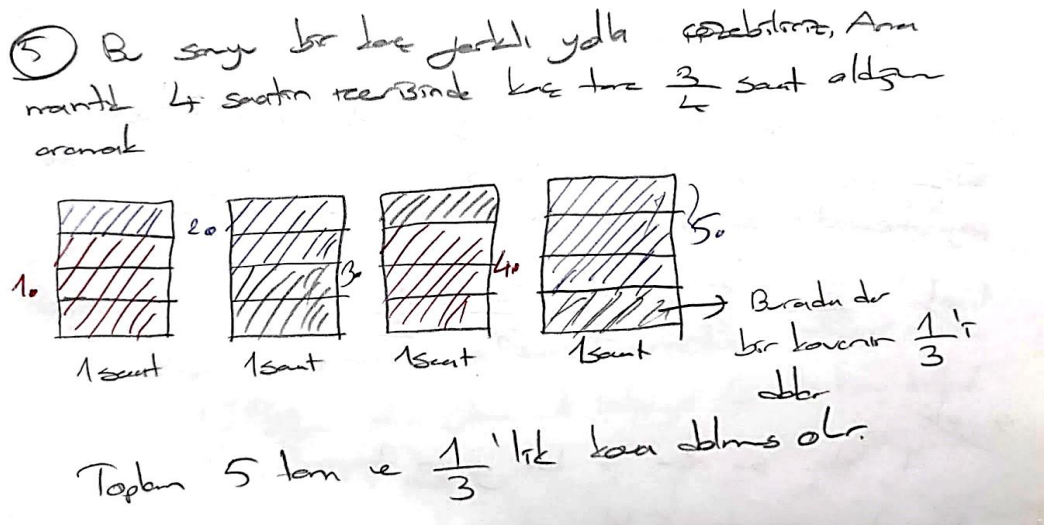 5 Bu soruyu bir kaç farklı yolla çözebiliriz, Ana
mantık 4 saatin içerisinde kaç tane 3/4 saat olduğunu
aramak
1. 2. 3. 4. 5.
1 saat 1 saat 1 saat 1 saat
Burada da
bir kovanın 1/3 'i
dolar
Toplam 5 tam ve 1/3 'lik kova dolmuş olur.